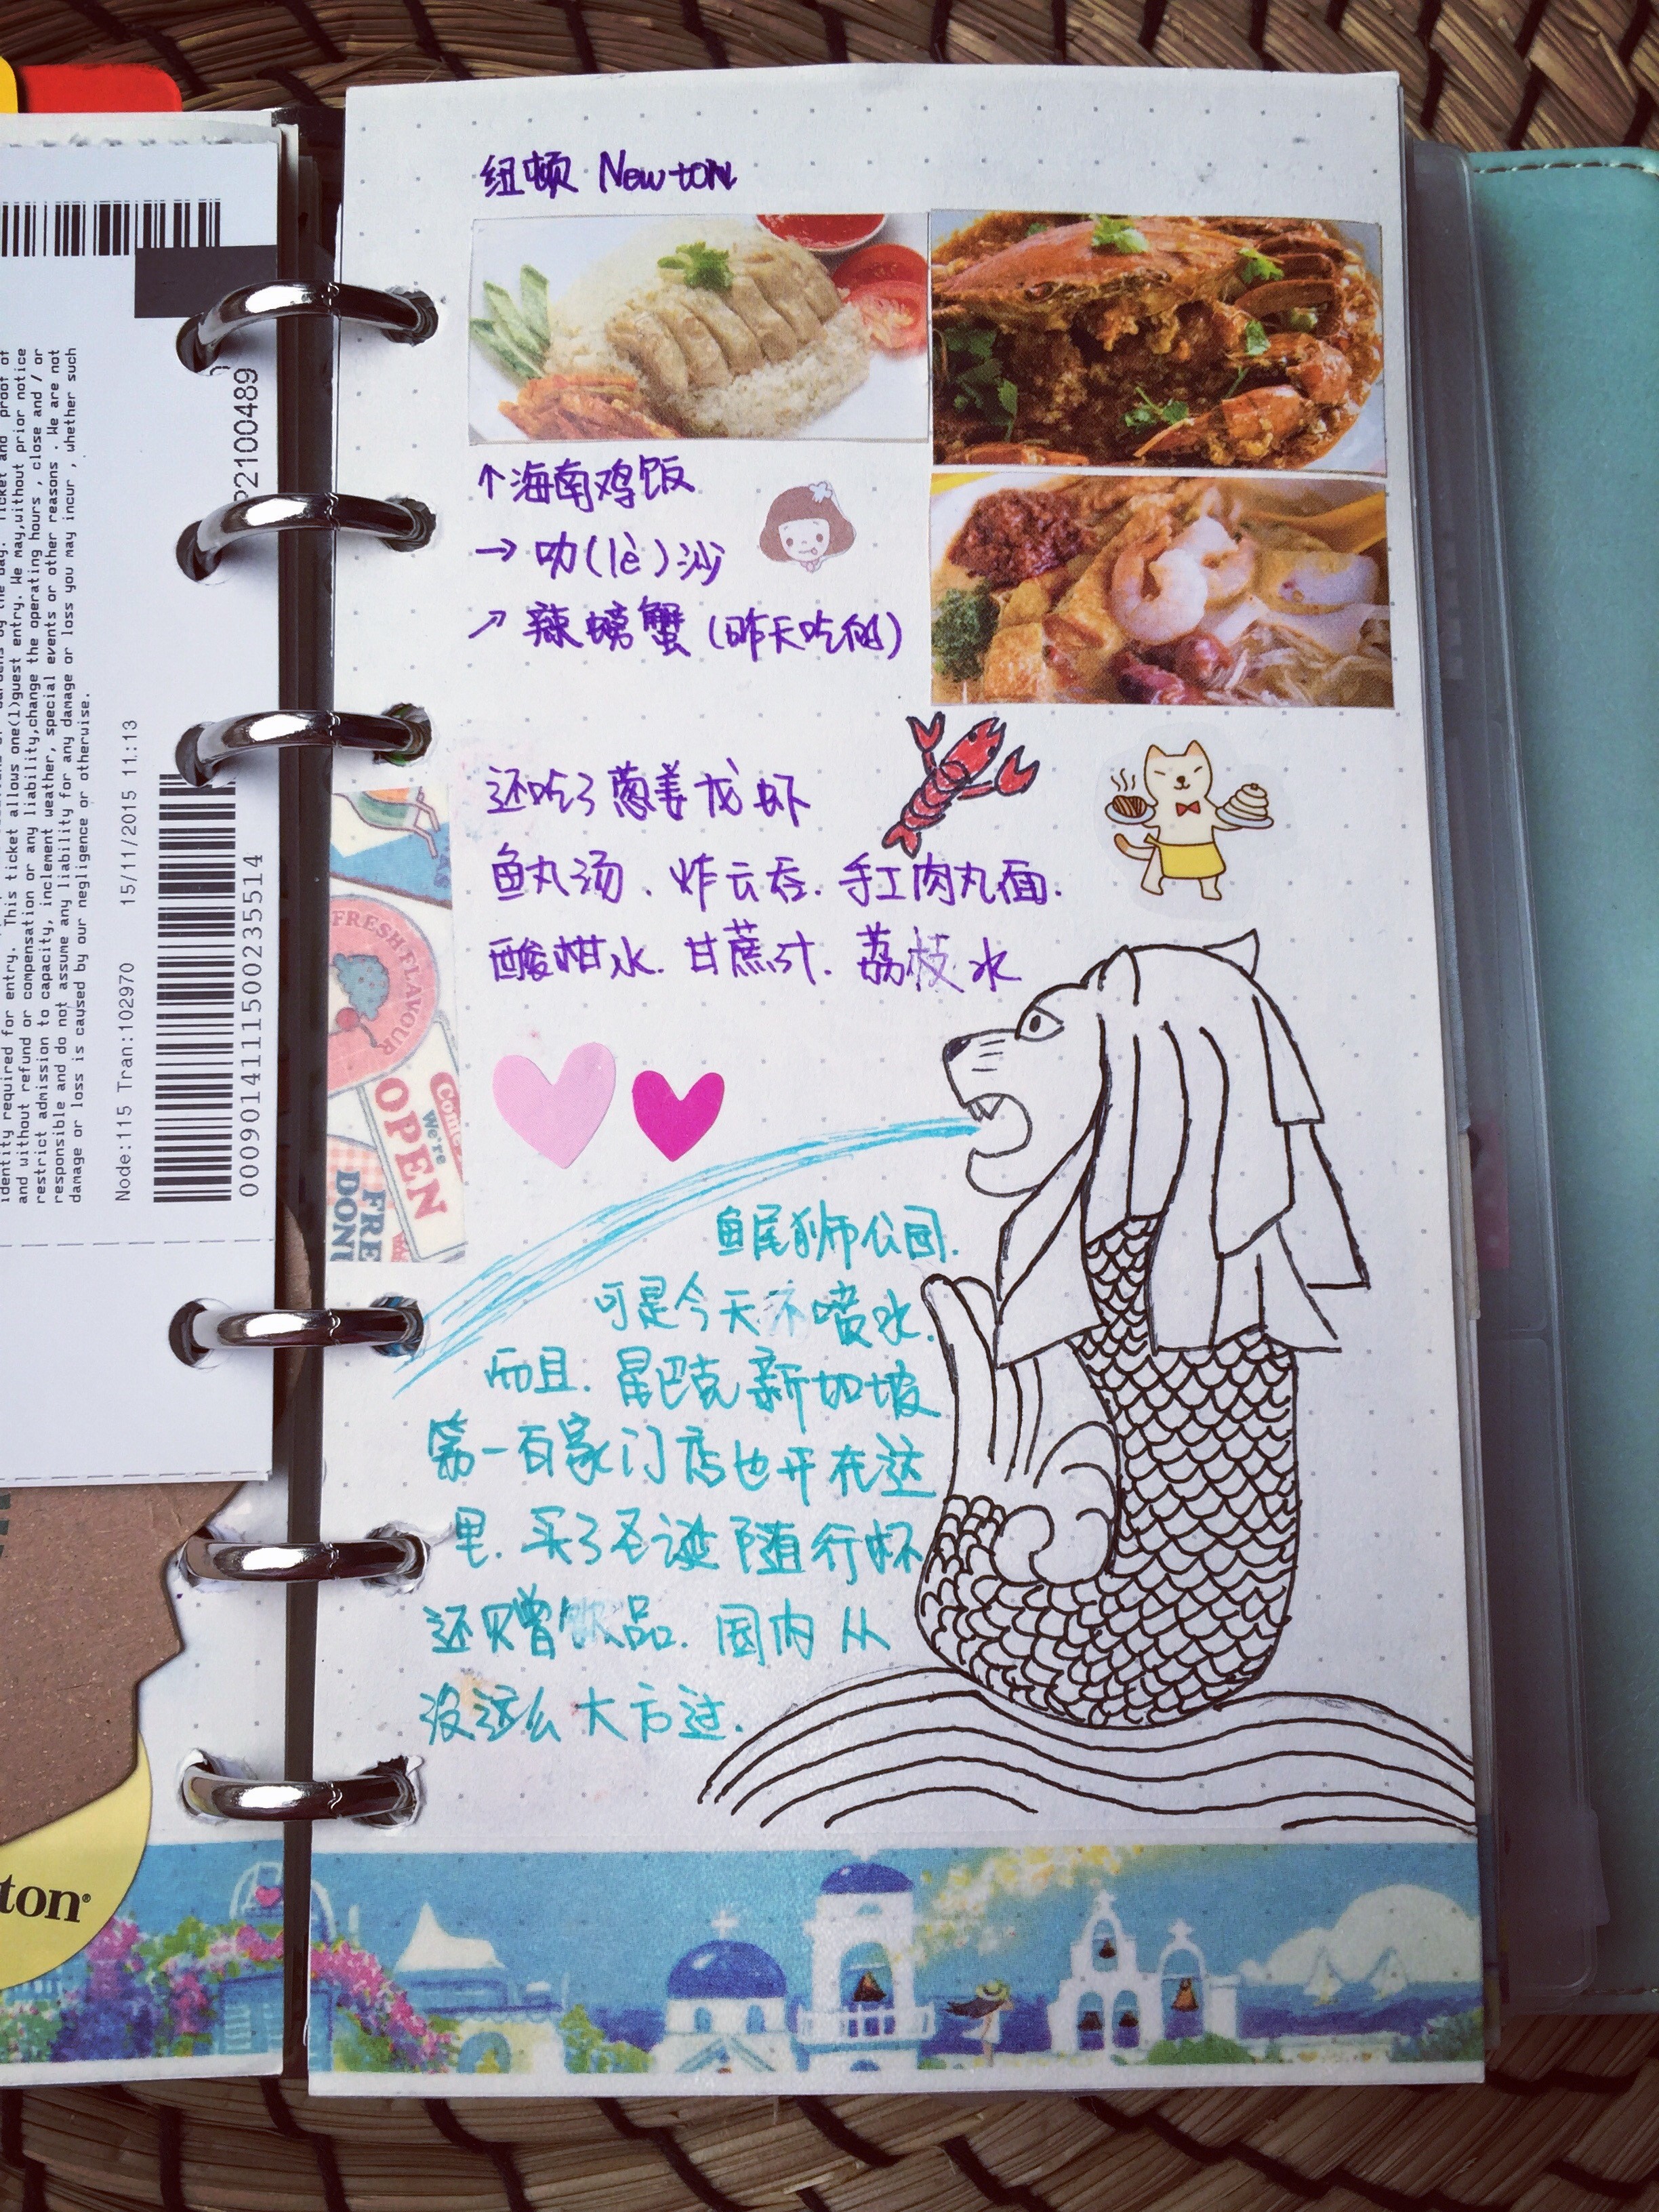 identity required for entry. This ticket allows one(1)guest entry. We may,without prior notice
and without refund or compensation or any liability,change the operating hours , close and / or
restrict admission to capacity, inclement weather, special events or other reasons . We are not
responsible and do not assume any liability for any damage or loss you may incur , whether such
damage or loss is caused by our negligence or otherwise.
Node:115 Tran:102970 15/11/2015 11:13
0009014111500235514
P2100489
ton
纽顿 Newton
↑海南鸡饭
→ 叻(lè)沙
↗ 辣螃蟹(昨天吃的)
还吃了葱姜龙虾
鱼丸汤、炸云吞、手工肉丸面.
酸柑水. 甘蔗汁. 荔枝水
FRESH FLAVOUR
Come
We're
OPEN
FRE
DON
鱼尾狮公园.
可是今天不喷水.
而且. 星巴克新加坡
第一百家门店也开在这
里. 买了圣诞随行杯
还赠饮品. 国内从
没这么大方过.